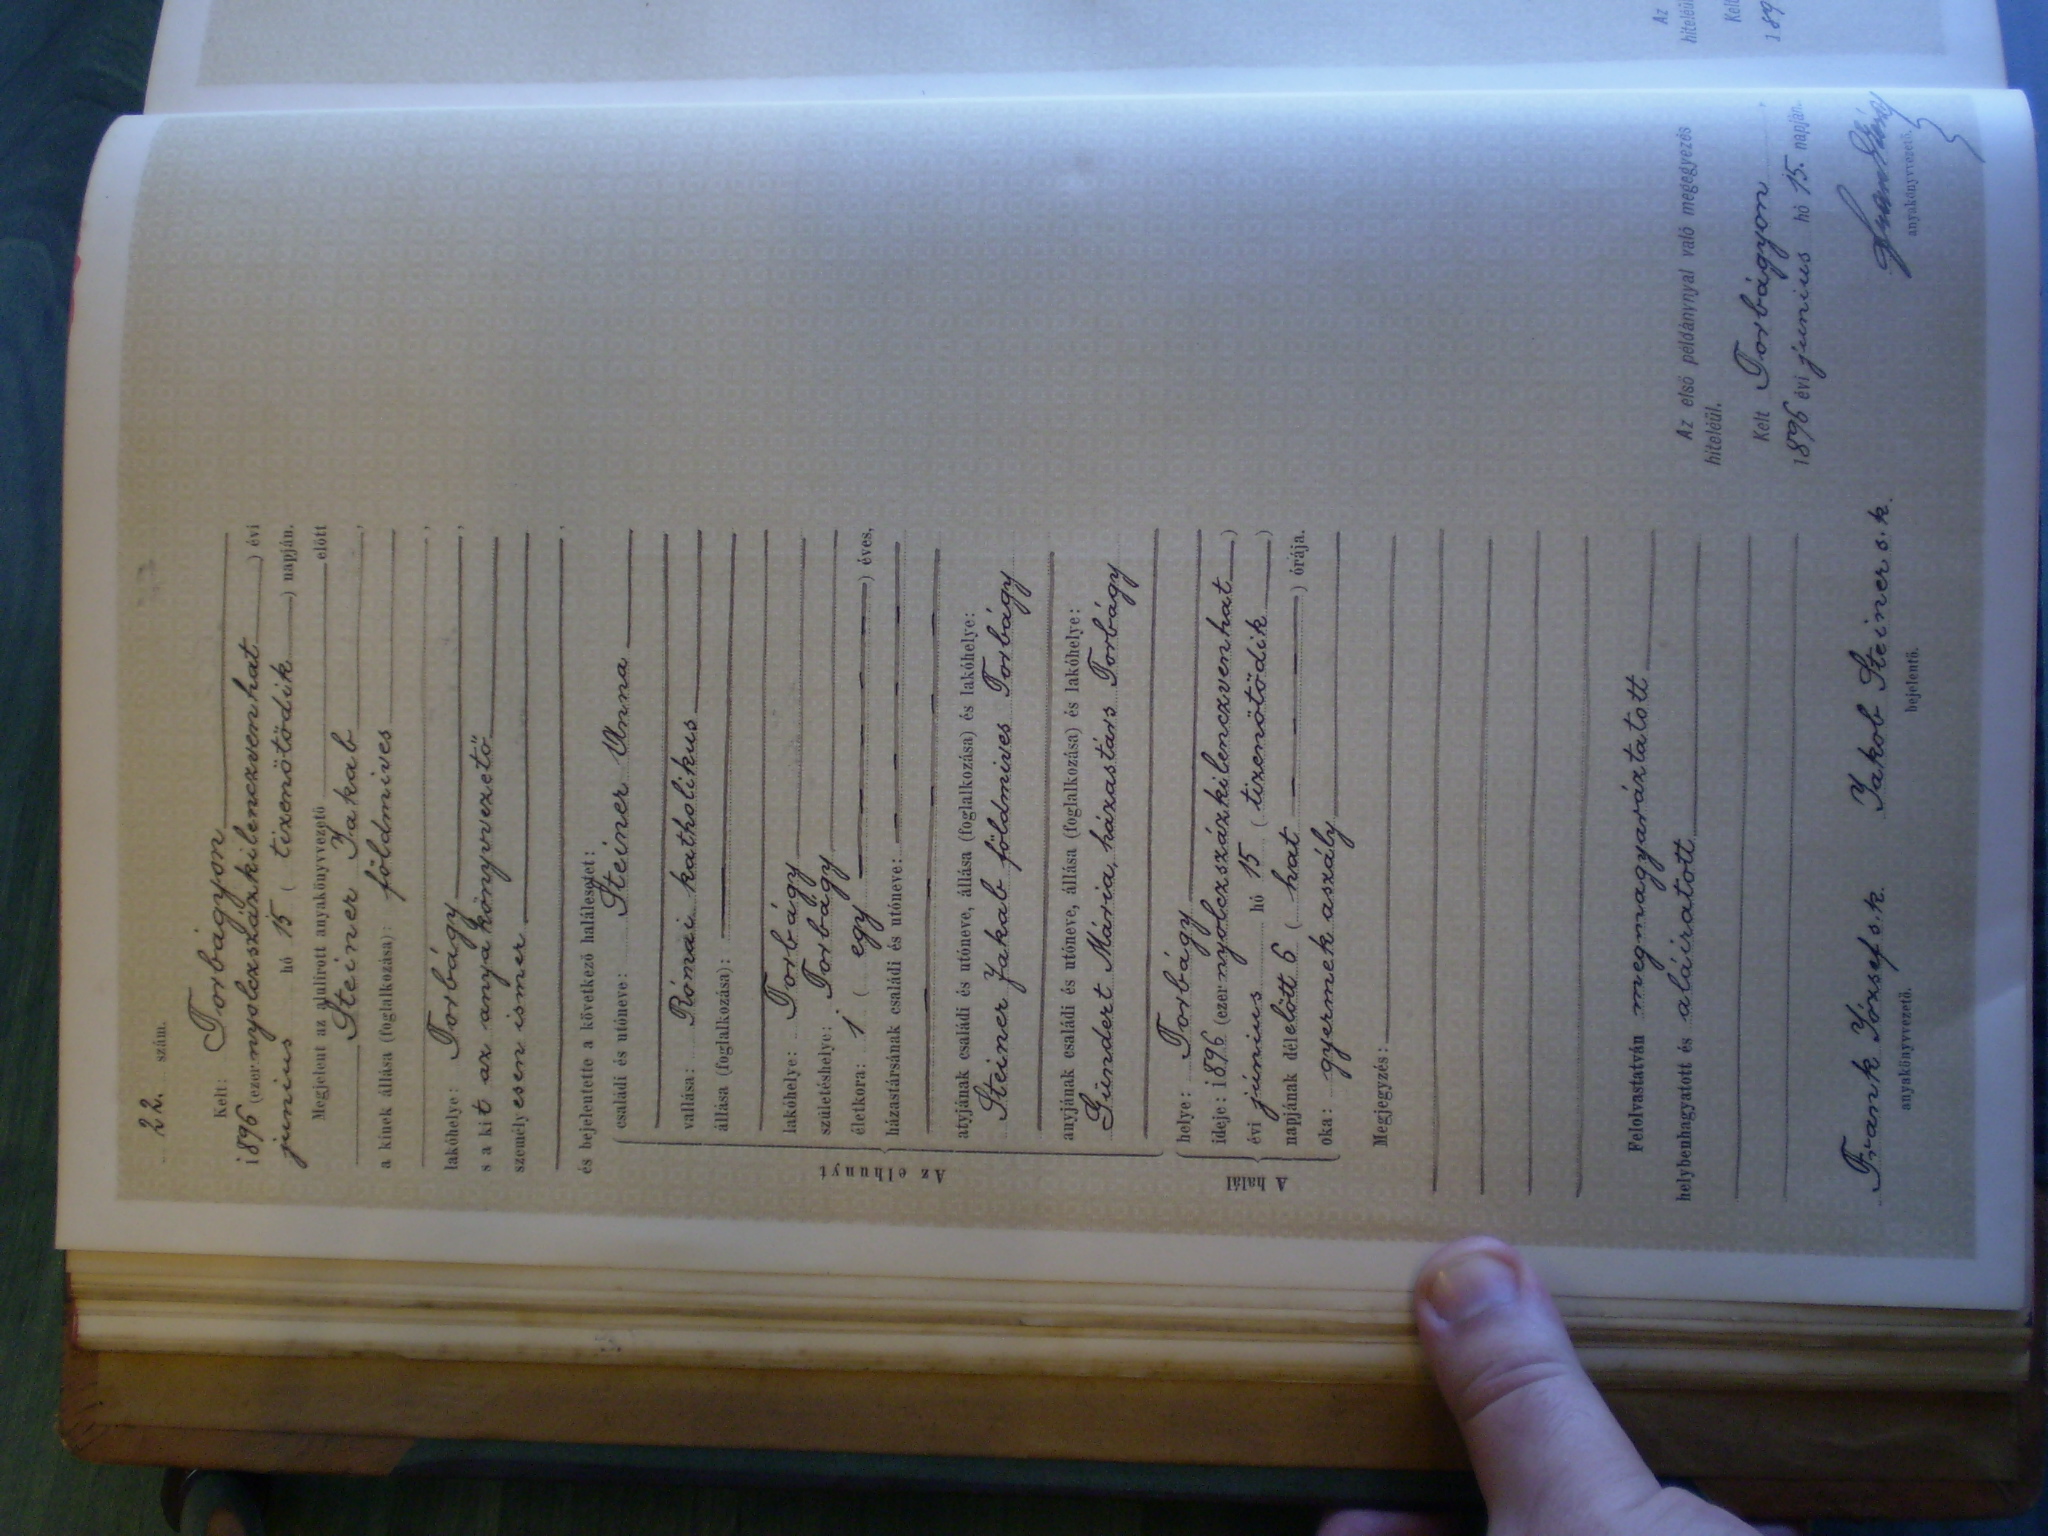 22. szám.
Kelt: Torbágyon
1896 (ezer nyolczszázkilenczvenhat) évi
junius hó 15 (tizenötödik) napján.
Megjelent az alulirott anyakönyvvezető előtt
Steiner Jakab,
a kinek állása (foglalkozása): földmives
,
lakóhelye: Torbágy,
s a kit az anyakönyvvezető
személyesen ismer
,
és bejelentette a következő halálesetet:
Az elhunyt
családi és utóneve: Steiner Anna
vallása: Római katholikus
állása (foglalkozása):
lakóhelye: Torbágy
születéshelye: Torbágy
életkora: 1 (egy) éves,
házastársának családi és utóneve:
atyjának családi és utóneve, állása (foglalkozása) és lakóhelye:
Steiner Jakab földmives Torbágy
anyjának családi és utóneve, állása (foglalkozása) és lakóhelye:
Gündert Mária, házastárs Torbágy
A halál
helye: Torbágy
ideje: 1896 (ezer nyolczszázkilenczvenhat)
évi június hó 15 (tizenötödik)
napjának délelőtt 6 (hat) órája.
oka: gyermek aszály
Megjegyzés:
Felolvastatván megmagyaráztatott
helybenhagyatott és aláiratott
Frank József s.k. Jakob Steiner s.k.
anyakönyvvezető. bejelentő.
Az első példánynyal való megegyezés
hiteléül.
Kelt Torbágyon,
1896 évi junius hó 15. napján.
anyakönyvvezető.
Az
hiteléül
Kelt
189